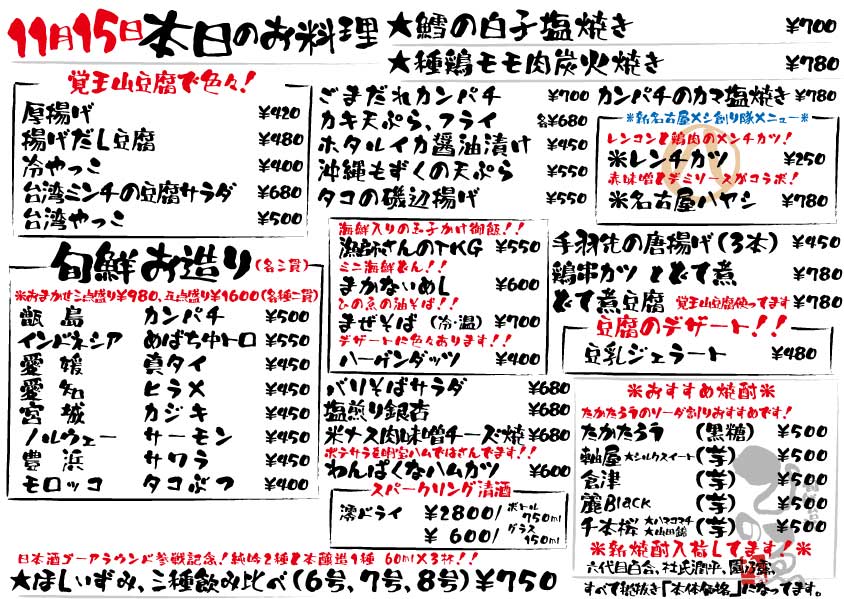 11月15日本日のお料理
★鱈の白子塩焼き ¥700
★種鶏モモ肉炭火焼き ¥780
覚王山豆腐で色々!
厚揚げ ¥420
揚げだし豆腐 ¥480
冷やっこ ¥400
台湾ミンチの豆腐サラダ ¥680
台湾やっこ ¥500
ごまだれカンパチ ¥700
カキ天ぷら、フライ 各¥680
ホタルイカ醤油漬け ¥450
沖縄もずくの天ぷら ¥550
タコの磯辺揚げ ¥550
カンパチのカマ塩焼き ¥780
※新名古屋メシ創り隊メニュー※
レンコンと鶏肉のメンチカツ!
米レンチカツ ¥250
赤味噌とデミソースがコラボ!
米名古屋ハヤシ ¥780
旬鮮お造り(各三貫)
※おまかせ三点盛り¥980、五点盛り¥1600(各種二貫)
甑島 カンパチ ¥500
インドネシア めばち中トロ ¥550
愛媛 真タイ ¥450
愛知 ヒラメ ¥450
宮城 カジキ ¥450
ノルウェー サーモン ¥450
豊浜 サワラ ¥450
モロッコ タコぶつ ¥400
海鮮入りの玉子かけ御飯!!
漁師さんのTKG ¥550
ミニ海鮮どん!!
まかないめし ¥600
ひの魚の油そば!!
まぜそば (冷・温) ¥700
デザートに色々あります!!
ハーゲンダッツ ¥400
バリそばサラダ ¥680
塩煎り銀杏 ¥680
米ナス肉味噌チーズ焼 ¥680
ポテサラを明宝ハムではさんでます!!
わんぱくなハムカツ ¥600
スパークリング清酒
澪ドライ ¥2800/ボトル750ml
¥600/グラス150ml
手羽先の唐揚げ(3本) ¥450
鶏串カツ とどて煮 ¥780
どて煮豆腐 覚王山豆腐使ってます ¥780
豆腐のデザート!!
豆乳ジェラート ¥480
※おすすめ焼酎※
たかたろうのソーダ割りおすすめです!
たかたろう (黒糖) ¥500
軸屋 ★シルクスイート (芋) ¥500
倉津 (芋) ¥500
麗Black (芋) ¥500
千本桜 ★ハマコマチ ★山田錦 (芋) ¥500
※新焼酎入荷してます!※
六代目百合、杜氏潤平、
すべて税抜き「本体価格」になってます。
日本酒ゴーアラウンド参戦記念!純吟2種と本醸造1種 60ml×3杯!!
★ほしいずみ、三種飲み比べ(6号、7号、8号)¥750